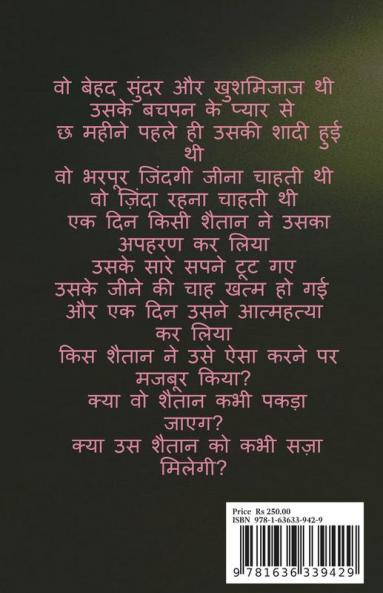 वो बेहद सुंदर और खुशमिजाज थी
उसके बचपन के प्यार से
छ महीने पहले ही उसकी शादी हुई
थी
वो भरपूर जिंदगी जीना चाहती थी
वो ज़िंदा रहना चाहती थी
एक दिन किसी शैतान ने उसका
अपहरण कर लिया
उसके सारे सपने टूट गए
उसके जीने की चाह खत्म हो गई
और एक दिन उसने आत्महत्या
कर लिया
किस शैतान ने उसे ऐसा करने पर
मजबूर किया?
क्या वो शैतान कभी पकड़ा
जाएग?
क्या उस शैतान को कभी सज़ा
मिलेगी?
Price Rs 250.00
ISBN 978-1-63633-942-9
9 781636 339429